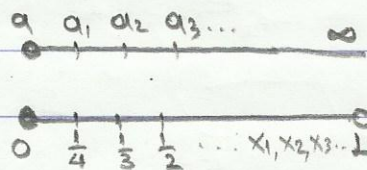 a a₁ a₂ a₃... ∞
0 1/4 1/3 1/2 .... x₁, x₂, x₃... 1